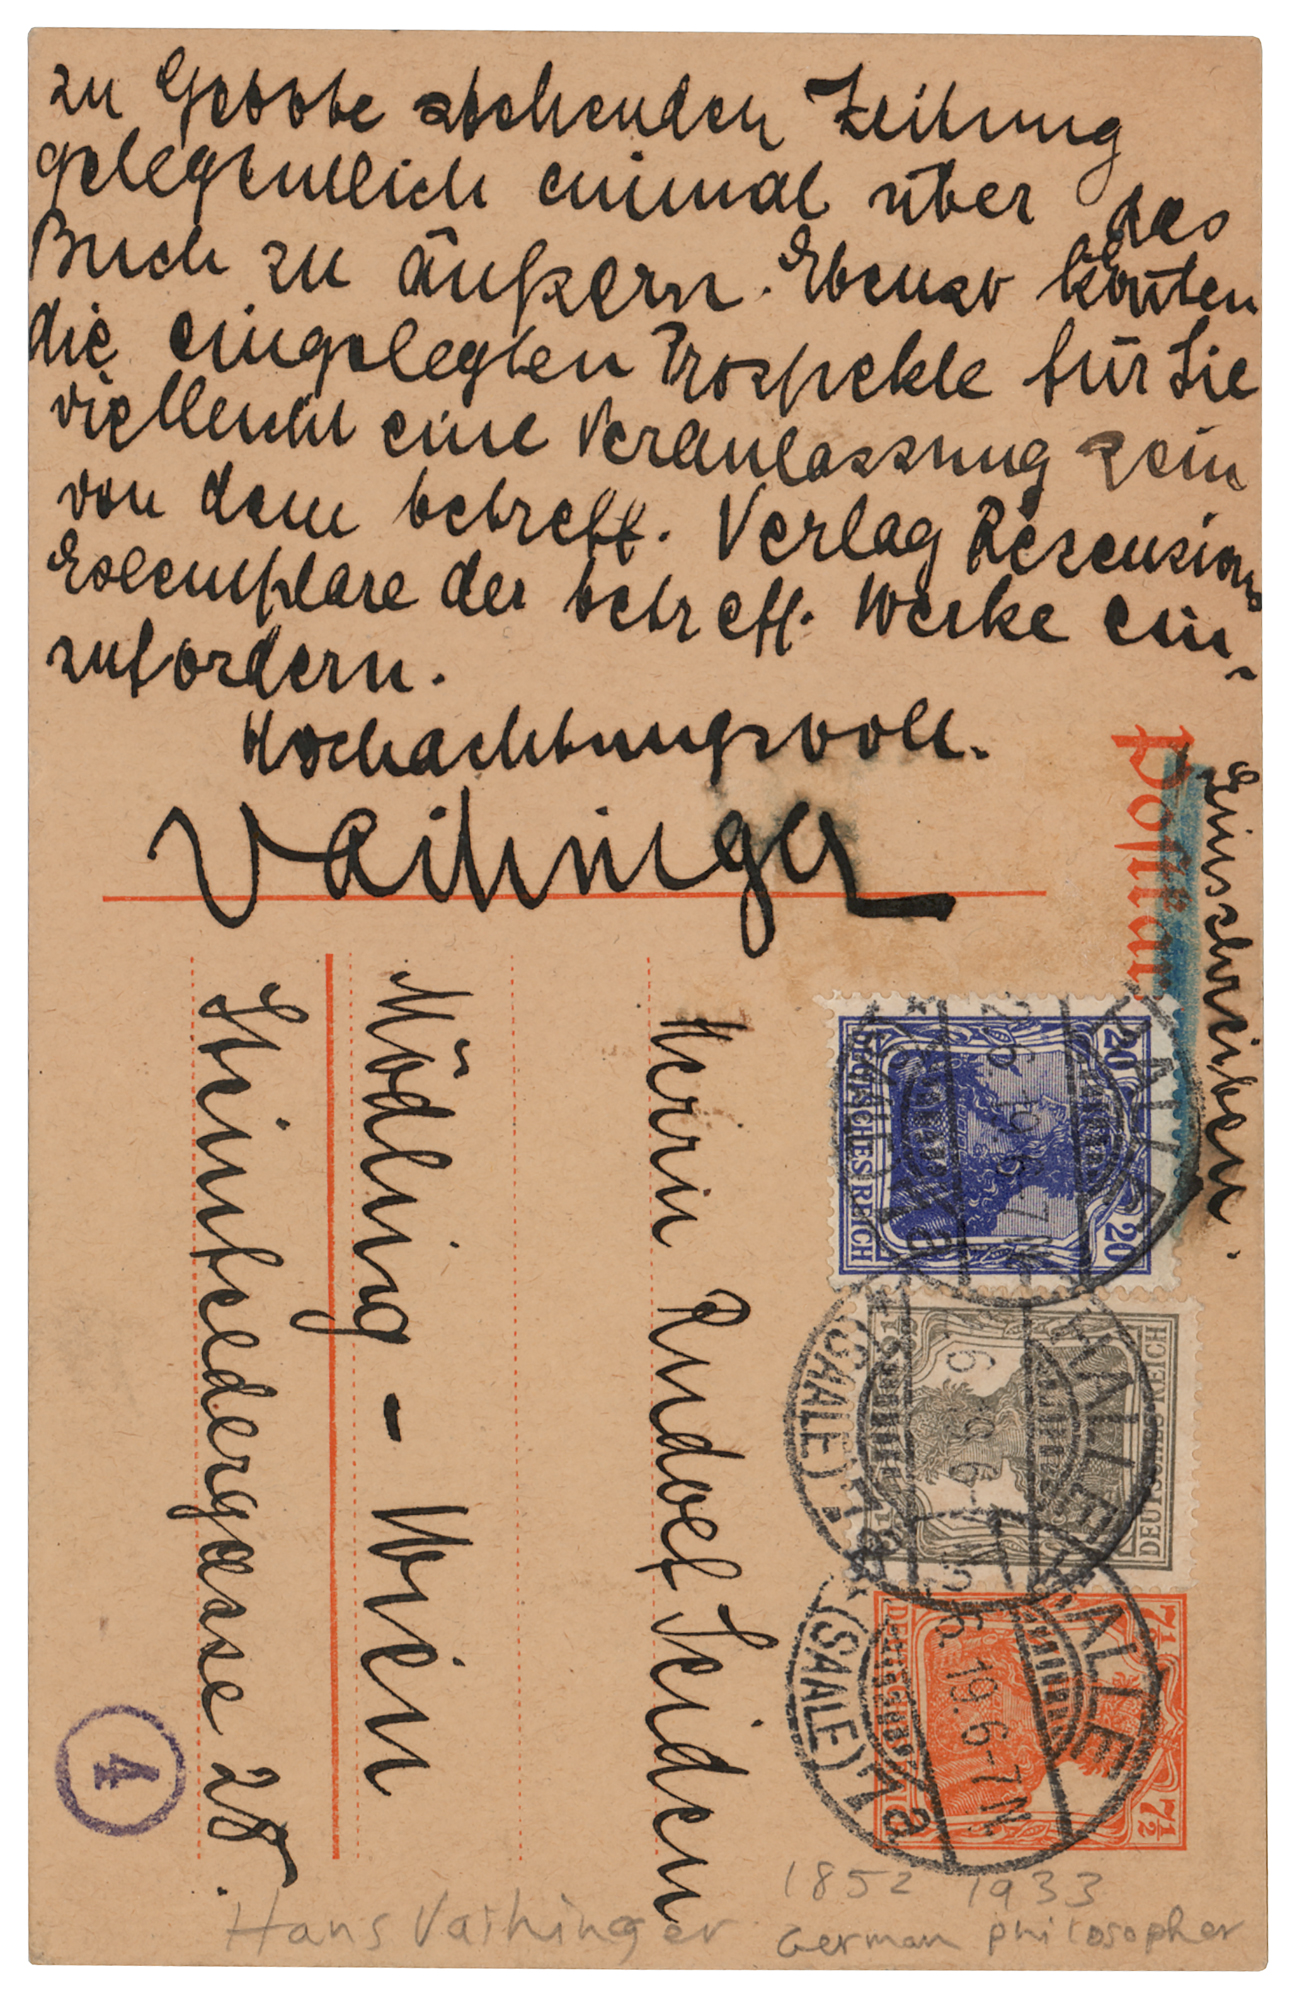 zu Gebote stehenden Zeitung
gelegentlich einmal über das
Buch zu äußern. Ebenso könnten
die eingelegten Prospekte für Sie
vielleicht eine Veranlassung sein
von dem betreff. Verlag Rezensions
Exemplare der betreff. Werke ein-
zufordern.
Hochachtungsvoll.
Vaihinger
Postkarte
Einschreiben.
Herrn Rudolf Seiden
Mödling - Wien
Steinfeldergasse 28.
20 20
DEUTSCHES REICH
DEUTSCHES REICH
7½ 7½
HALLE
(SAALE) 1a
26.6.19.6-7N
HALLE
(SAALE) 1a
6-7N
HALLE
(SAALE) 1a
26.6.19.6-7N
4
1852 1933
Hans Vaihinger German philosopher